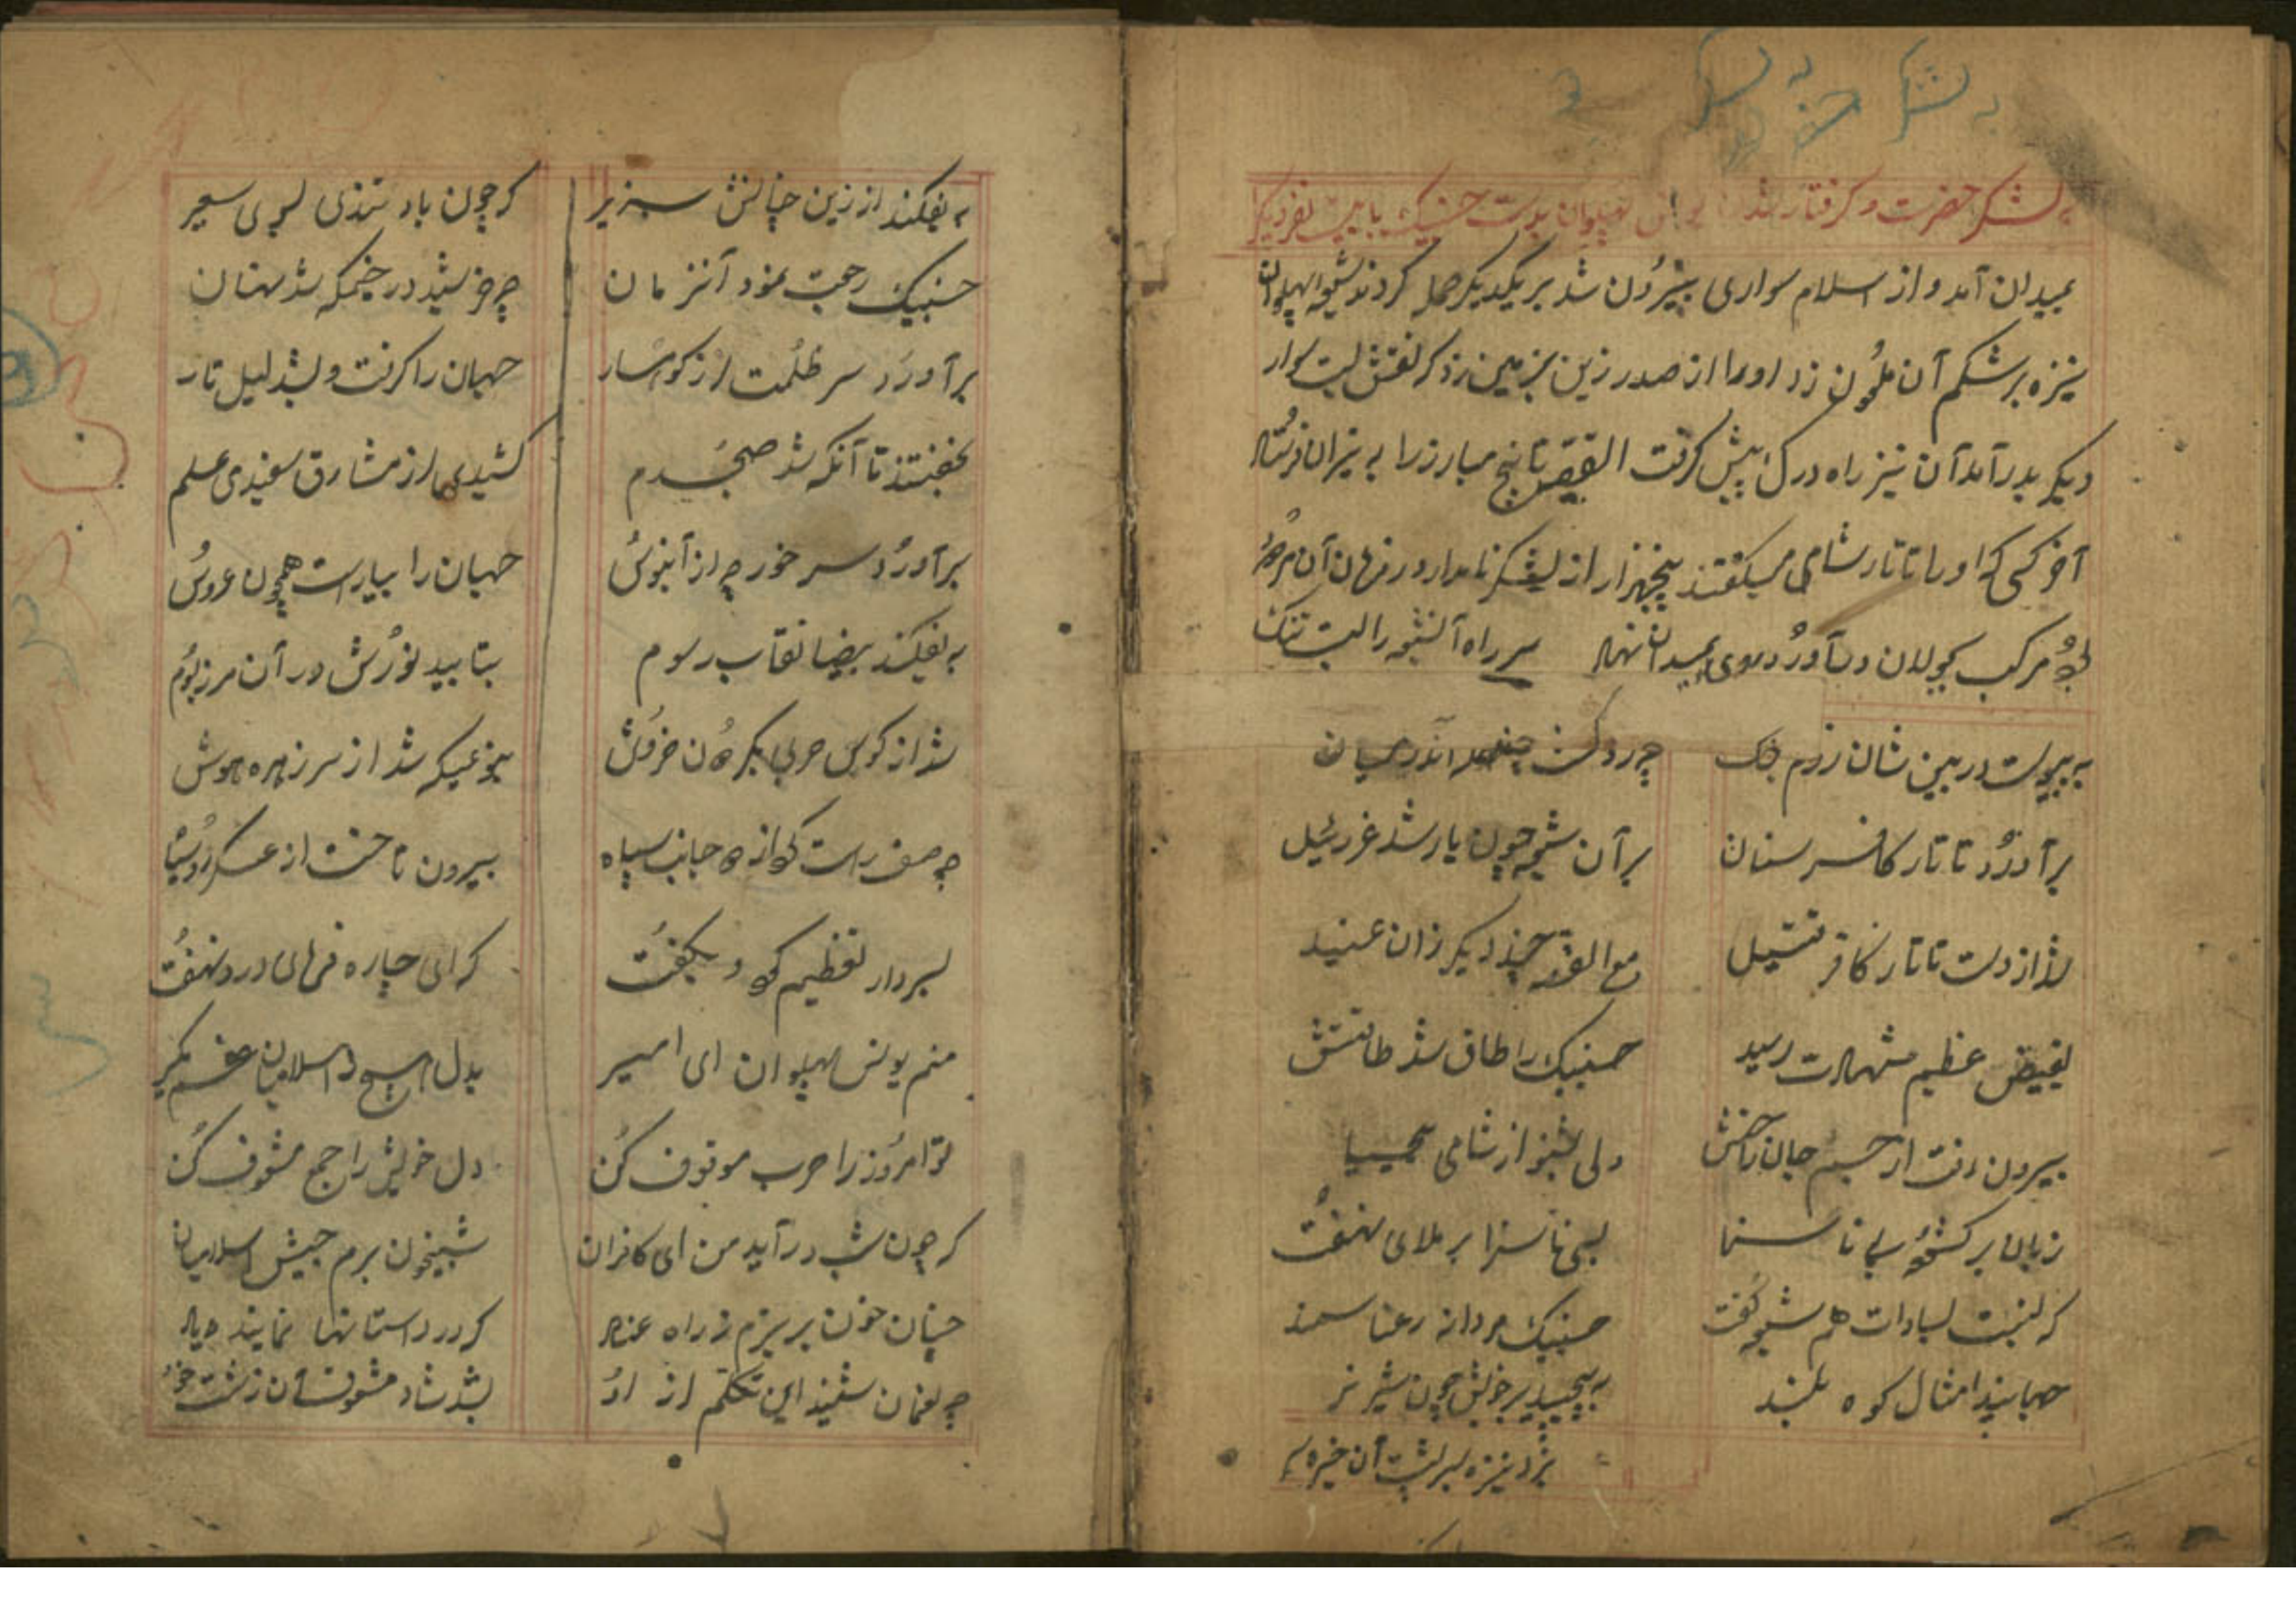 به لشکر
لشکر حضرت و گرفتار شدن پهلوان بدست حنیک با بیست نفر دیگر
بمیدان آمد و از اسلام سواری بیرون شد بر یکدیگر حمله کردند شیعه پهلوان
نیزه بر شکم آن ملعون زد او را از صدر زین بزمین زد که نقش بست سوار
دیگر بدر آمد آن نیز راه درک پیش گرفت القصه تا پنج مبارز را به نیران فرستاد
آخر کسی که او را تاتار شامی میگفتند پنجهزار از لشکر نامدار در فرمان آن
مرکب بجولان در آورد روی بمیدان نهاد سر راه آن شیعه را بست تنگ
به پیوست در بین شان رزم جنگ چو رد گشت چند اندر میان
بر آورد تاتار کافر سنان بر آن شیعه چون یار شد عزرئیل
شد از دست تاتار کافر قتیل مع القصه چند دیگر زان عنید
بفیض عظیم شهادت رسید حنیک را طاق شد طاقتش
بیرون رفت از جسم جان راحتش ولی بشنو از شامی بیحیا
زبان بر کشود بی ناسزا بسی ناسزا بر ملای نهفت
که نسبت بسادات هم شیعه گفت حنیک مردانه رعنا سمند
جهانید امثال کوه بلند به پیچید بر خویش چون شیر نر
بزد نیزه بر پشت آن خیره سر
به یفکند از زین چنانش بزیر که چون باد تندی بسوی سعیر
حنیک رجعت نمود آنزمان چو خورشید در خیمگه شد نهان
بر آورد سر ظلمت از کوهسار جهان را گرفت و بشد لیل تار
بخفتند تا آنکه شد صبحدم کشیدی از مشارق سفیدی علم
بر آورد سر خور چو از آبنوس جهان را بیاراست همچون عروس
به یفکند بیضا نقاب رسوم بتابید نورش در آن مرز بوم
شد از کوس حربی بگردون خروش بنوعیکه شد از سر زهره هوش
چو صف راست کرد از دو جانب سپاه بیرون تاخت از عسکر رو سیاه
بسردار تعظیم کرد و بگفت که ای چاره فرمای درد نهفت
منم یونس پهلوان ای امیر بدل هیچ ز اسلامیان غم مگیر
تو امروز را حرب موقوف کن دل خویش را جمع مشعوف کن
که چون شب در آید من ای کافران شبیخون برم جیش اسلامیان
چنان خون بریزم ز راه عناد که در داستانها نمایند یاد
چو نعمان شنید این تکلم از او بشد شاد مشعوف آن زشت خو